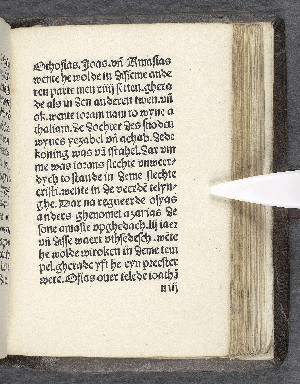 Othosias. Joas. vñ Amasias
wente he wolde in disseme ande
ren parte men xiiij setten. ghera
de als in den anderen twen. vñ
ok. wente ioram nam to wyue a
thaliam. de dochter des snoden
wyues yezabel vñ achab. dede
koning was vñ israhel. Dar vm
me was iorans slechte vnwerr-
dych to stande in deme slechte
cristi. wente in de veerdē telyn-
ghe. Dar na regneerde osyas
anders ghenomet azarias de
sone amasie vpghedach. lij iaer
vñ disse waert vthsedesch. wēte
he wolde wiroken in deme tem
pel. gherade yft he eyn preester
were. Osias ouer telede ioathā
n iij